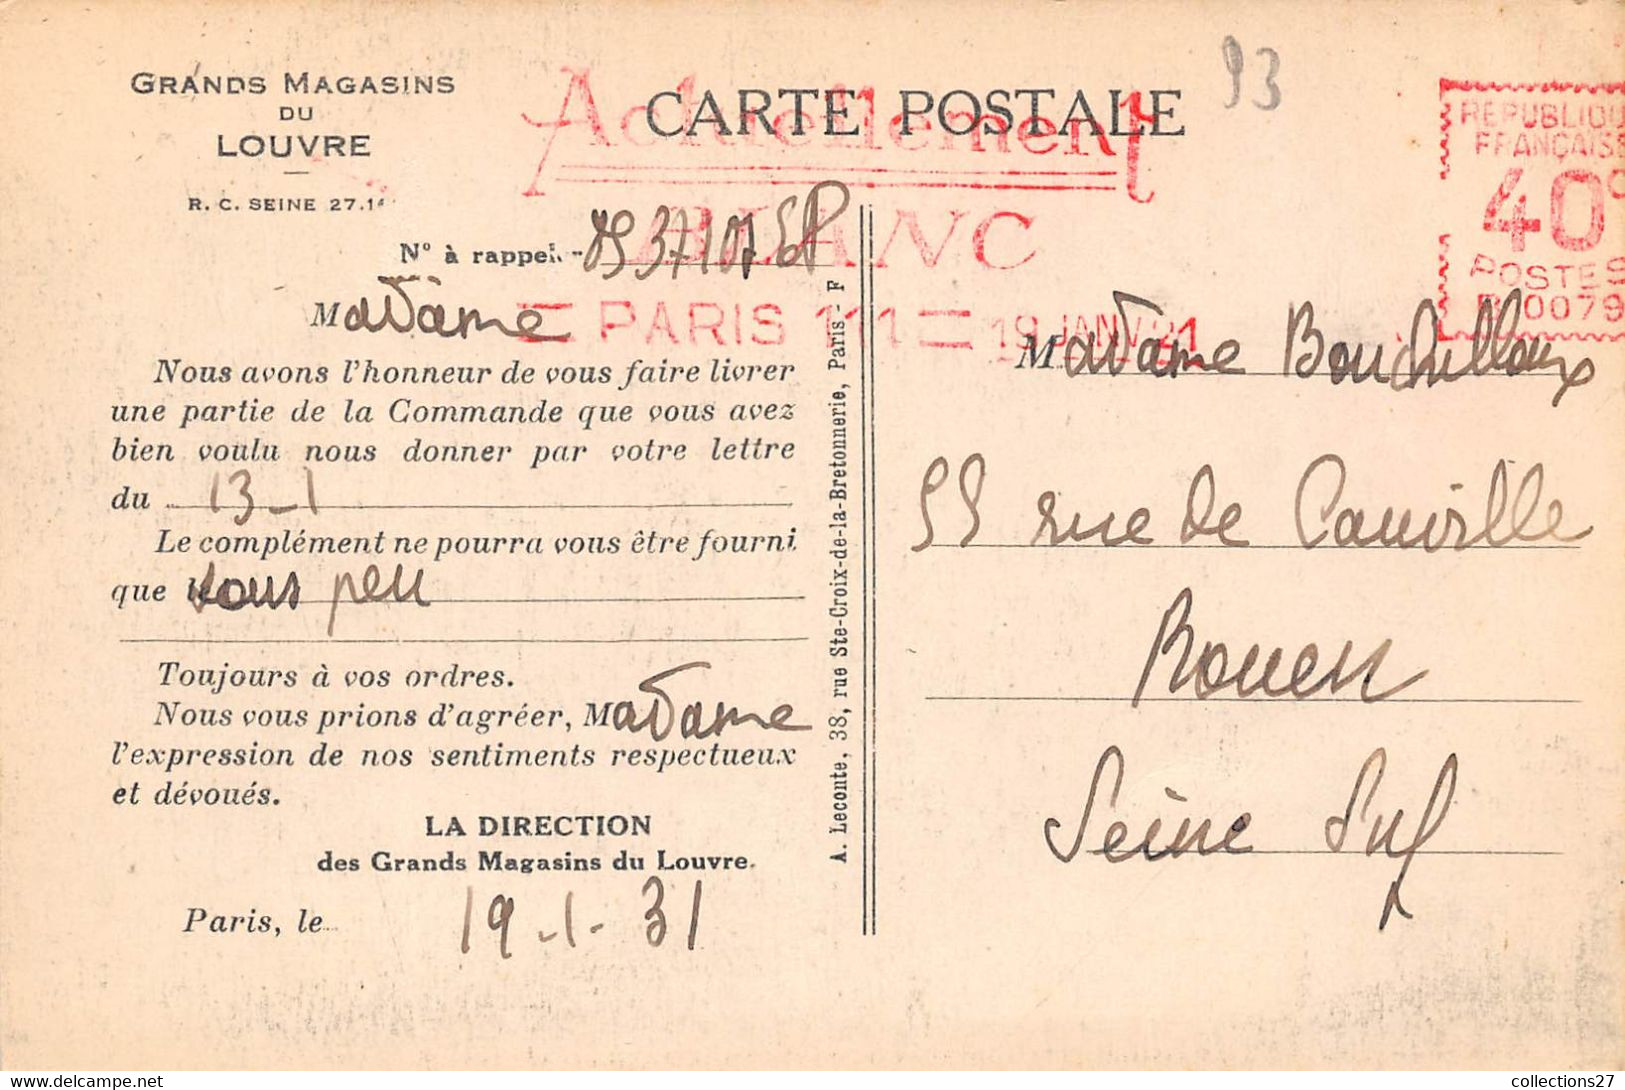 GRANDS MAGASINS
DU
LOUVRE
R. C. SEINE 27.1
CARTE POSTALE
93
Actuellement
BLANC
= PARIS 111 = 19 JANV 31
REPUBLIQUE
FRANÇAISE
40c
POSTES
0079
N° à rappeler
Madame
Nous avons l'honneur de vous faire livrer
une partie de la Commande que vous avez
bien voulu nous donner par votre lettre
du 13-1
Le complément ne pourra vous être fourni
que sous peu
Toujours à vos ordres.
Nous vous prions d'agréer, Madame
l'expression de nos sentiments respectueux
et dévoués.
LA DIRECTION
des Grands Magasins du Louvre.
Paris, le 19-1-31
A. Leconte, 38, rue Ste-Croix-de-la-Bretonnerie, Paris - F
Madame
rue de
Rouen
Seine Inf
collections27